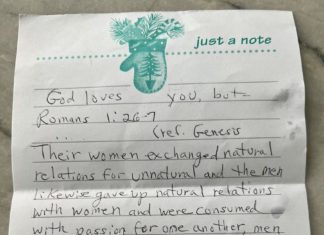 just a note
God loves you, but-
Romans 1:26-7
.... (ref. Genesis
Their women exchanged natural
relations for unnatural and the men
likewise gave up natural relations
with women and were consumed
with passion for one another, men